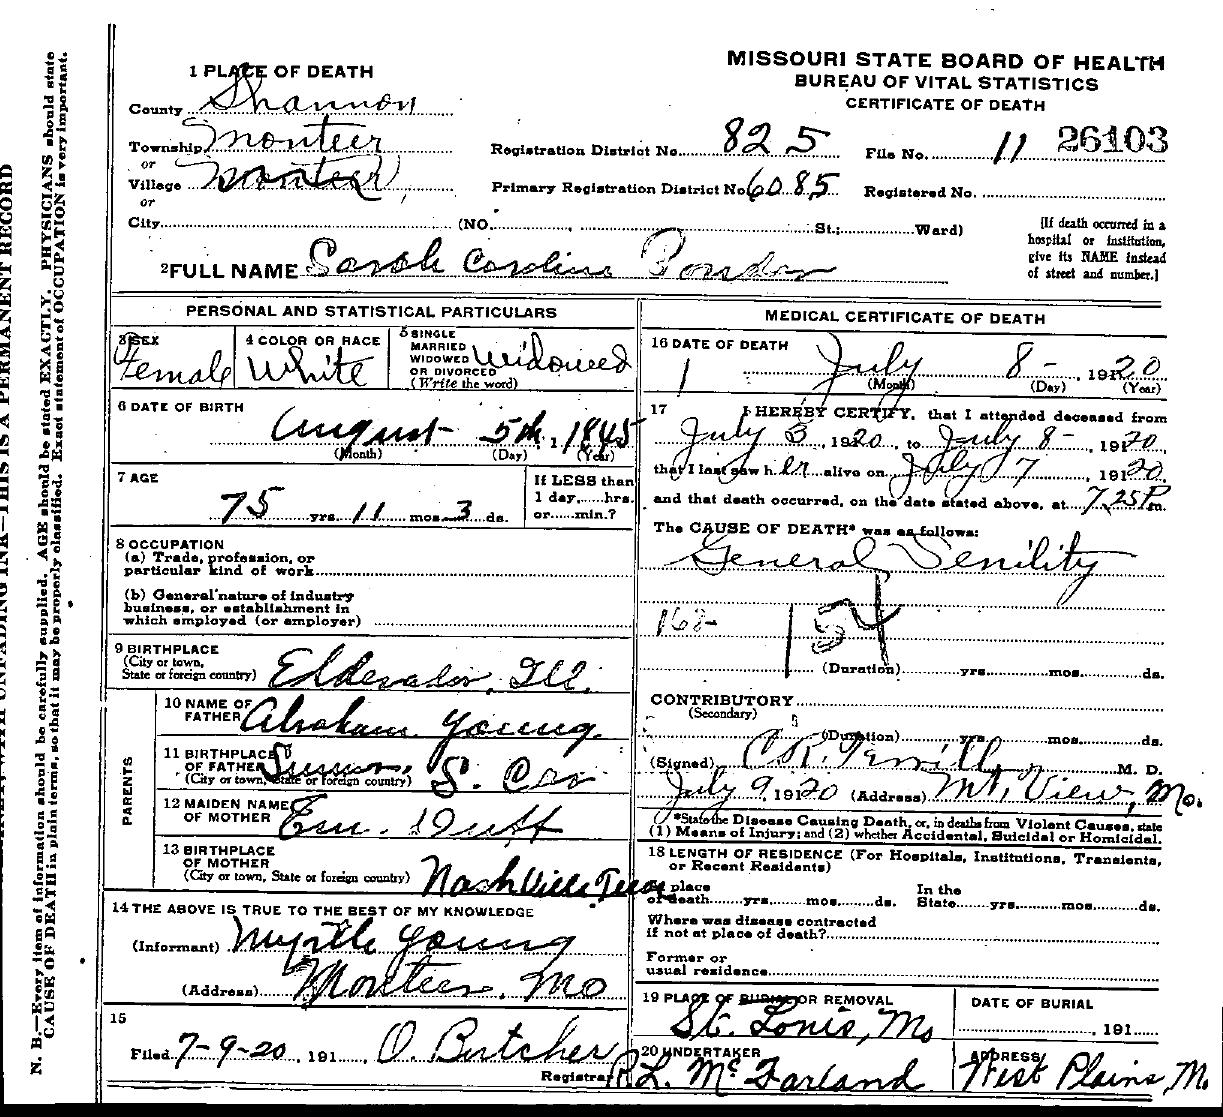 MISSOURI STATE BOARD OF HEALTH
BUREAU OF VITAL STATISTICS
CERTIFICATE OF DEATH
1 PLACE OF DEATH
County Shannon
Township Monteer
or
Village Monteer
or
City (NO. St.; Ward)
Registration District No. 825 File No. 11 26103
Primary Registration District No 6085 Registered No.
[If death occurred in a
hospital or institution,
give its NAME instead
of street and number.]
2 FULL NAME Sarah Caroline
PERSONAL AND STATISTICAL PARTICULARS
3 SEX Female
4 COLOR OR RACE White
5 SINGLE
MARRIED
WIDOWED
OR DIVORCED
(Write the word) Widowed
6 DATE OF BIRTH
August 5th, 1845
(Month) (Day) (Year)
7 AGE
75 yrs. 11 mos. 3 ds.
If LESS than
1 day, hrs.
or min.?
8 OCCUPATION
(a) Trade, profession, or
particular kind of work
(b) General nature of industry
business, or establishment in
which employed (or employer)
9 BIRTHPLACE
(City or town,
State or foreign country) Ill.
PARENTS
10 NAME OF
FATHER Abraham Young
11 BIRTHPLACE
OF FATHER
(City or town, State or foreign country) S. Car
12 MAIDEN NAME
OF MOTHER Em. Duff
13 BIRTHPLACE
OF MOTHER
(City or town, State or foreign country) Nashville Tenn
14 THE ABOVE IS TRUE TO THE BEST OF MY KNOWLEDGE
(Informant) Myrtle Young
(Address) Monteer, Mo
15
Filed 7-9-20, 191 O. Butcher
Registrar
MEDICAL CERTIFICATE OF DEATH
16 DATE OF DEATH
July 8 - , 1920
(Month) (Day) (Year)
17 I HEREBY CERTIFY, that I attended deceased from
July 3, 1920, to July 8 - 1920,
that I last saw her alive on July 7, 1920,
and that death occurred, on the date stated above, at 7.25 P m.
The CAUSE OF DEATH* was as follows:
General Senility
162-
154
(Duration) yrs. mos. ds.
CONTRIBUTORY
(Secondary)
(Duration) yrs. mos. ds.
(Signed) C.R. Terrill, M. D.
July 9, 1920 (Address) Mt. View, Mo.
*State the Disease Causing Death, or, in deaths from Violent Causes, state
(1) Means of Injury; and (2) whether Accidental, Suicidal or Homicidal.
18 LENGTH OF RESIDENCE (For Hospitals, Institutions, Transients,
or Recent Residents)
place In the
of death yrs. mos. ds. State yrs. mos. ds.
Where was disease contracted
if not at place of death?
Former or
usual residence
19 PLACE OF BURIAL OR REMOVAL
St. Louis, Mo
DATE OF BURIAL
, 191
20 UNDERTAKER
R L. McFarland
ADDRESS
West Plains M.
N. B.—Every item of information should be carefully supplied. AGE should be stated EXACTLY. PHYSICIANS should state
CAUSE OF DEATH in plain terms, so that it may be properly classified. Exact statement of OCCUPATION is very important.
UNFADING INK—THIS IS A PERMANENT RECORD